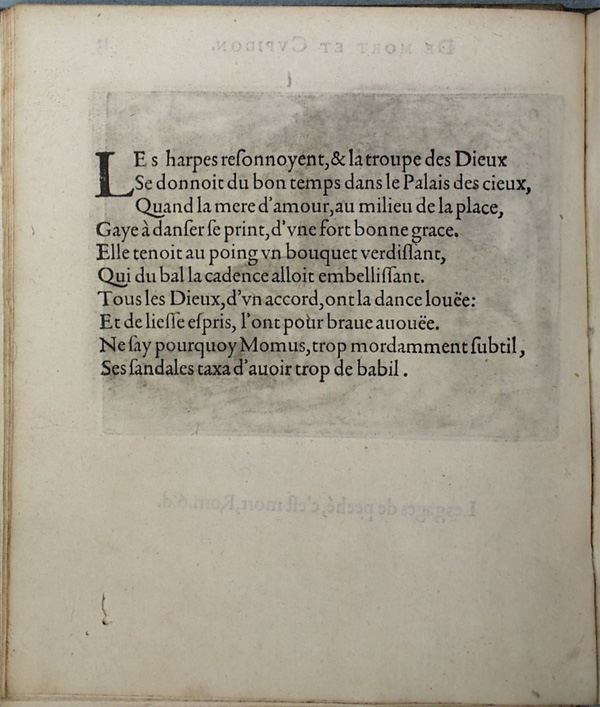 LEs harpes reſonnoyent, & la troupe des Dieux
Se donnoit du bon temps dans le Palais des cieux,
Quand la mere d'amour, au milieu de la place,
Gaye à danſer ſe print, d'vne fort bonne grace.
Elle tenoit au poing vn bouquet verdiſſant,
Qui du bal la cadence alloit embelliſſant.
Tous les Dieux, d'vn accord, ont la dance louëe:
Et de lieſſe eſpris, l'ont pour braue auouëe.
Ne ſay pourquoy Momus, trop mordamment ſubtil,
Ses ſandales taxa d'auoir trop de babil.